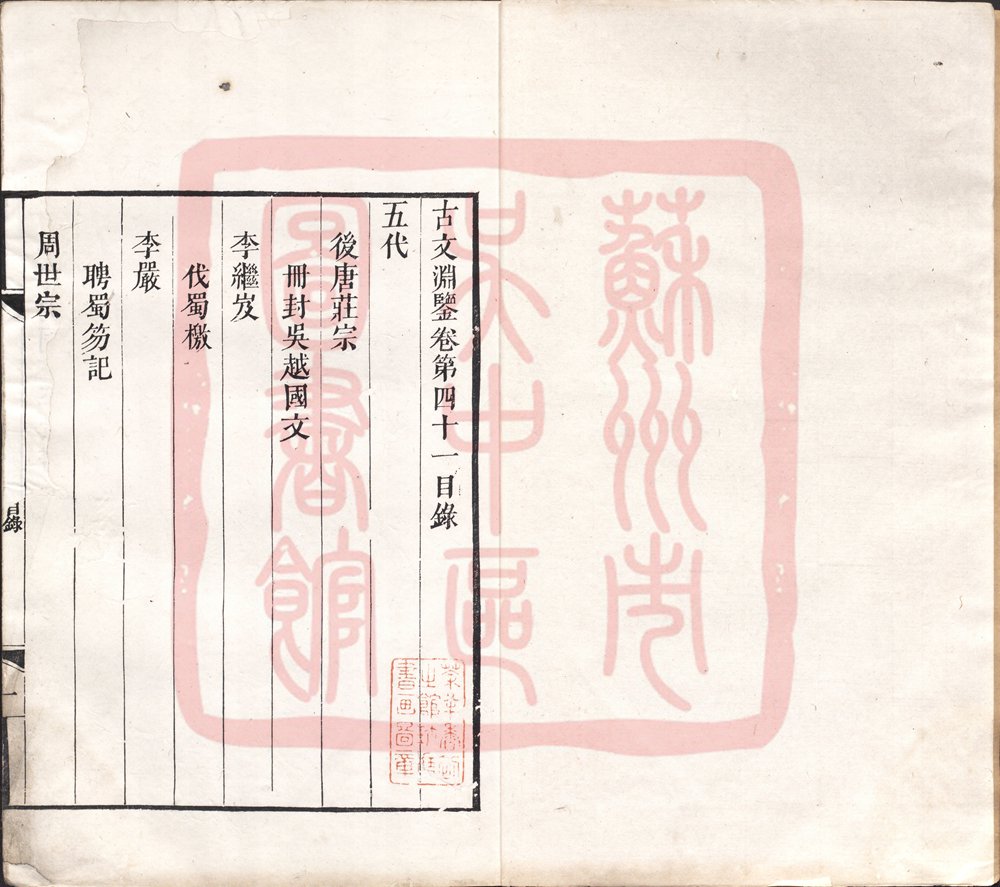 古文淵鑒卷第四十一目錄
五代
後唐莊宗
冊封吳越國文
李繼岌
伐蜀檄
李嚴
聘蜀笏記
周世宗
目錄
一
蘇州市
吳中區
圖書館
書画圖章